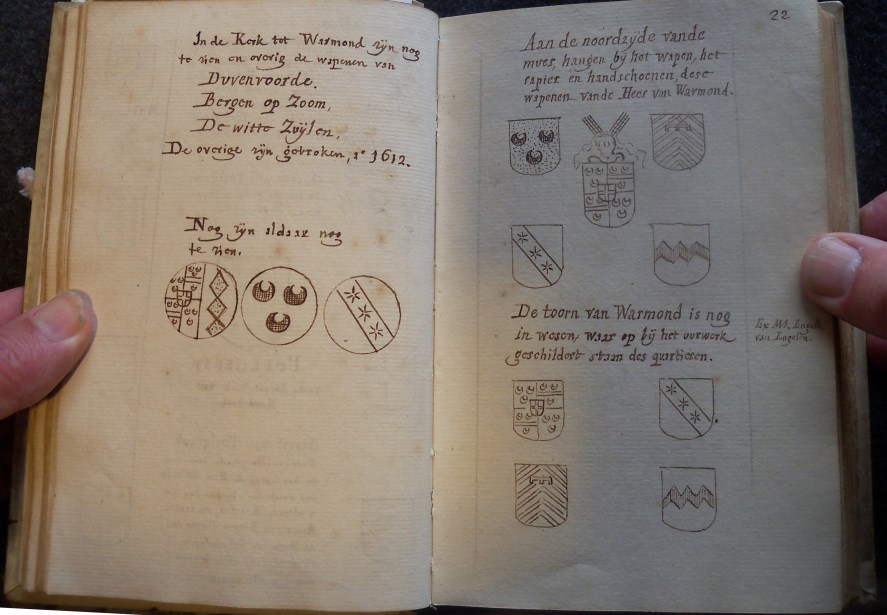 In de Kerk tot Warmond zÿn nog
te zien en overig de wapenen van
Duvenvoorde.
Bergen op Zoom,
De witte Zuÿlen.
De overige zÿn gebroken, aº 1612.
Nog zÿn aldaar nog
te zien.
22
Aan de noordzÿde vande
muer, hangen bÿ het wapen, het
rapier en handschoenen, dese
wapenen vande Heer van Warmond.
De toorn van Warmond is nog
in wesen, waar op bÿ het uurwerk
geschildert staan des quartieren.
Ex Ms. Engelb.
van Engelen.